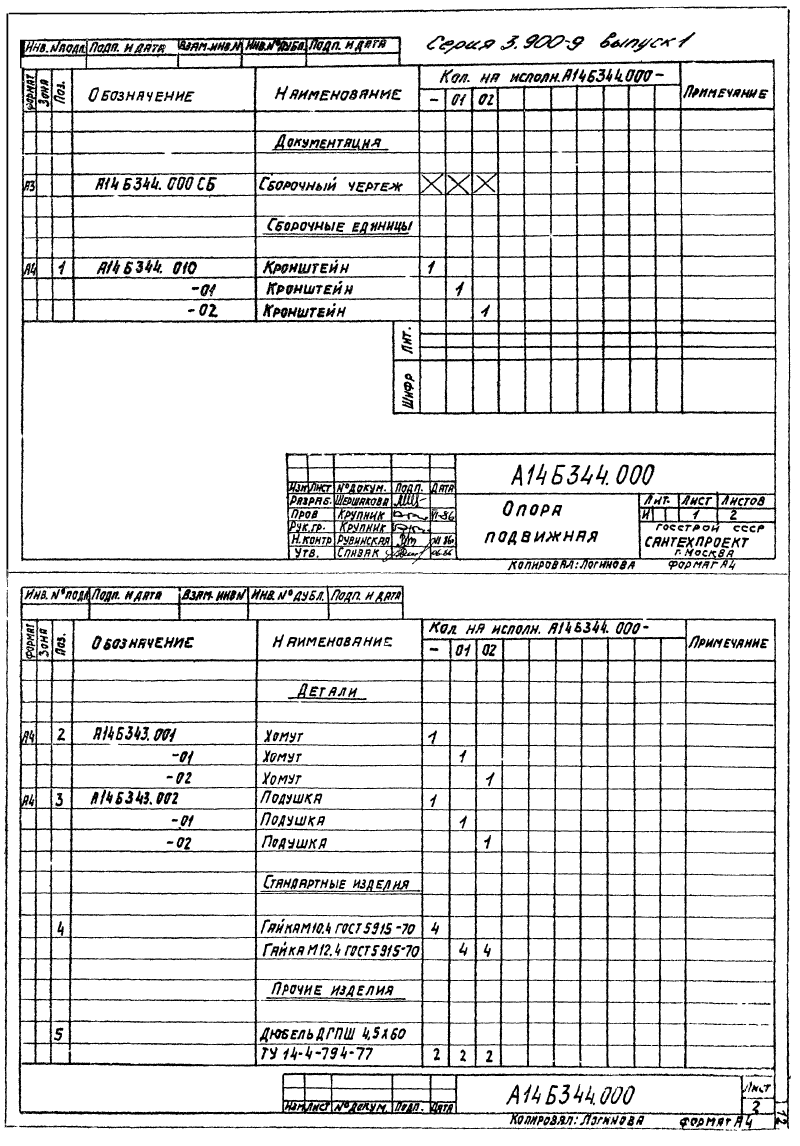 Серия 3.900-9 выпуск 1
Инв. № подл. Подп. и дата Взам. инв. № Инв. № дубл. Подп. и дата
Формат Зона Поз. Обозначение Наименование Кол. на исполн. А14Б344.000- Примечание
- 01 02
Документация
А3 А14Б344.000 СБ Сборочный чертеж X X X
Сборочные единицы
А4 1 А14Б344.010 Кронштейн 1
-01 Кронштейн 1
-02 Кронштейн 1
Лит.
Шифр
А14Б344.000
Изм Лист № докум. Подп. Дата
Разраб. Шершакова
Пров Крупник VI-86
Рук.гр. Крупник
Н.контр Рувинская
Утв. Спивак
Опора подвижная
Лит. Лист Листов
И 1 2
Госстрой СССР
Сантехпроект
г. Москва
Копировал: Логинова Формат А4
Инв. № подл Подп. и дата Взам. инв № Инв. № дубл. Подп. и дата
Формат Зона Поз. Обозначение Наименование Кол. на исполн. А14Б344.000- Примечание
- 01 02
Детали
А4 2 А14Б343.001 Хомут 1
-01 Хомут 1
-02 Хомут 1
А4 3 А14Б343.002 Подушка 1
-01 Подушка 1
-02 Подушка 1
Стандартные изделия
4 Гайка М10.4 ГОСТ 5915-70 4
Гайка М12.4 ГОСТ 5915-70 4 4
Прочие изделия
5 Дюбель ДГПШ 4,5х60
ТУ 14-4-794-77 2 2 2
Изм Лист № докум. Подп. Дата
А14Б344.000
Лист
2
Копировал: Логинова Формат А4
12